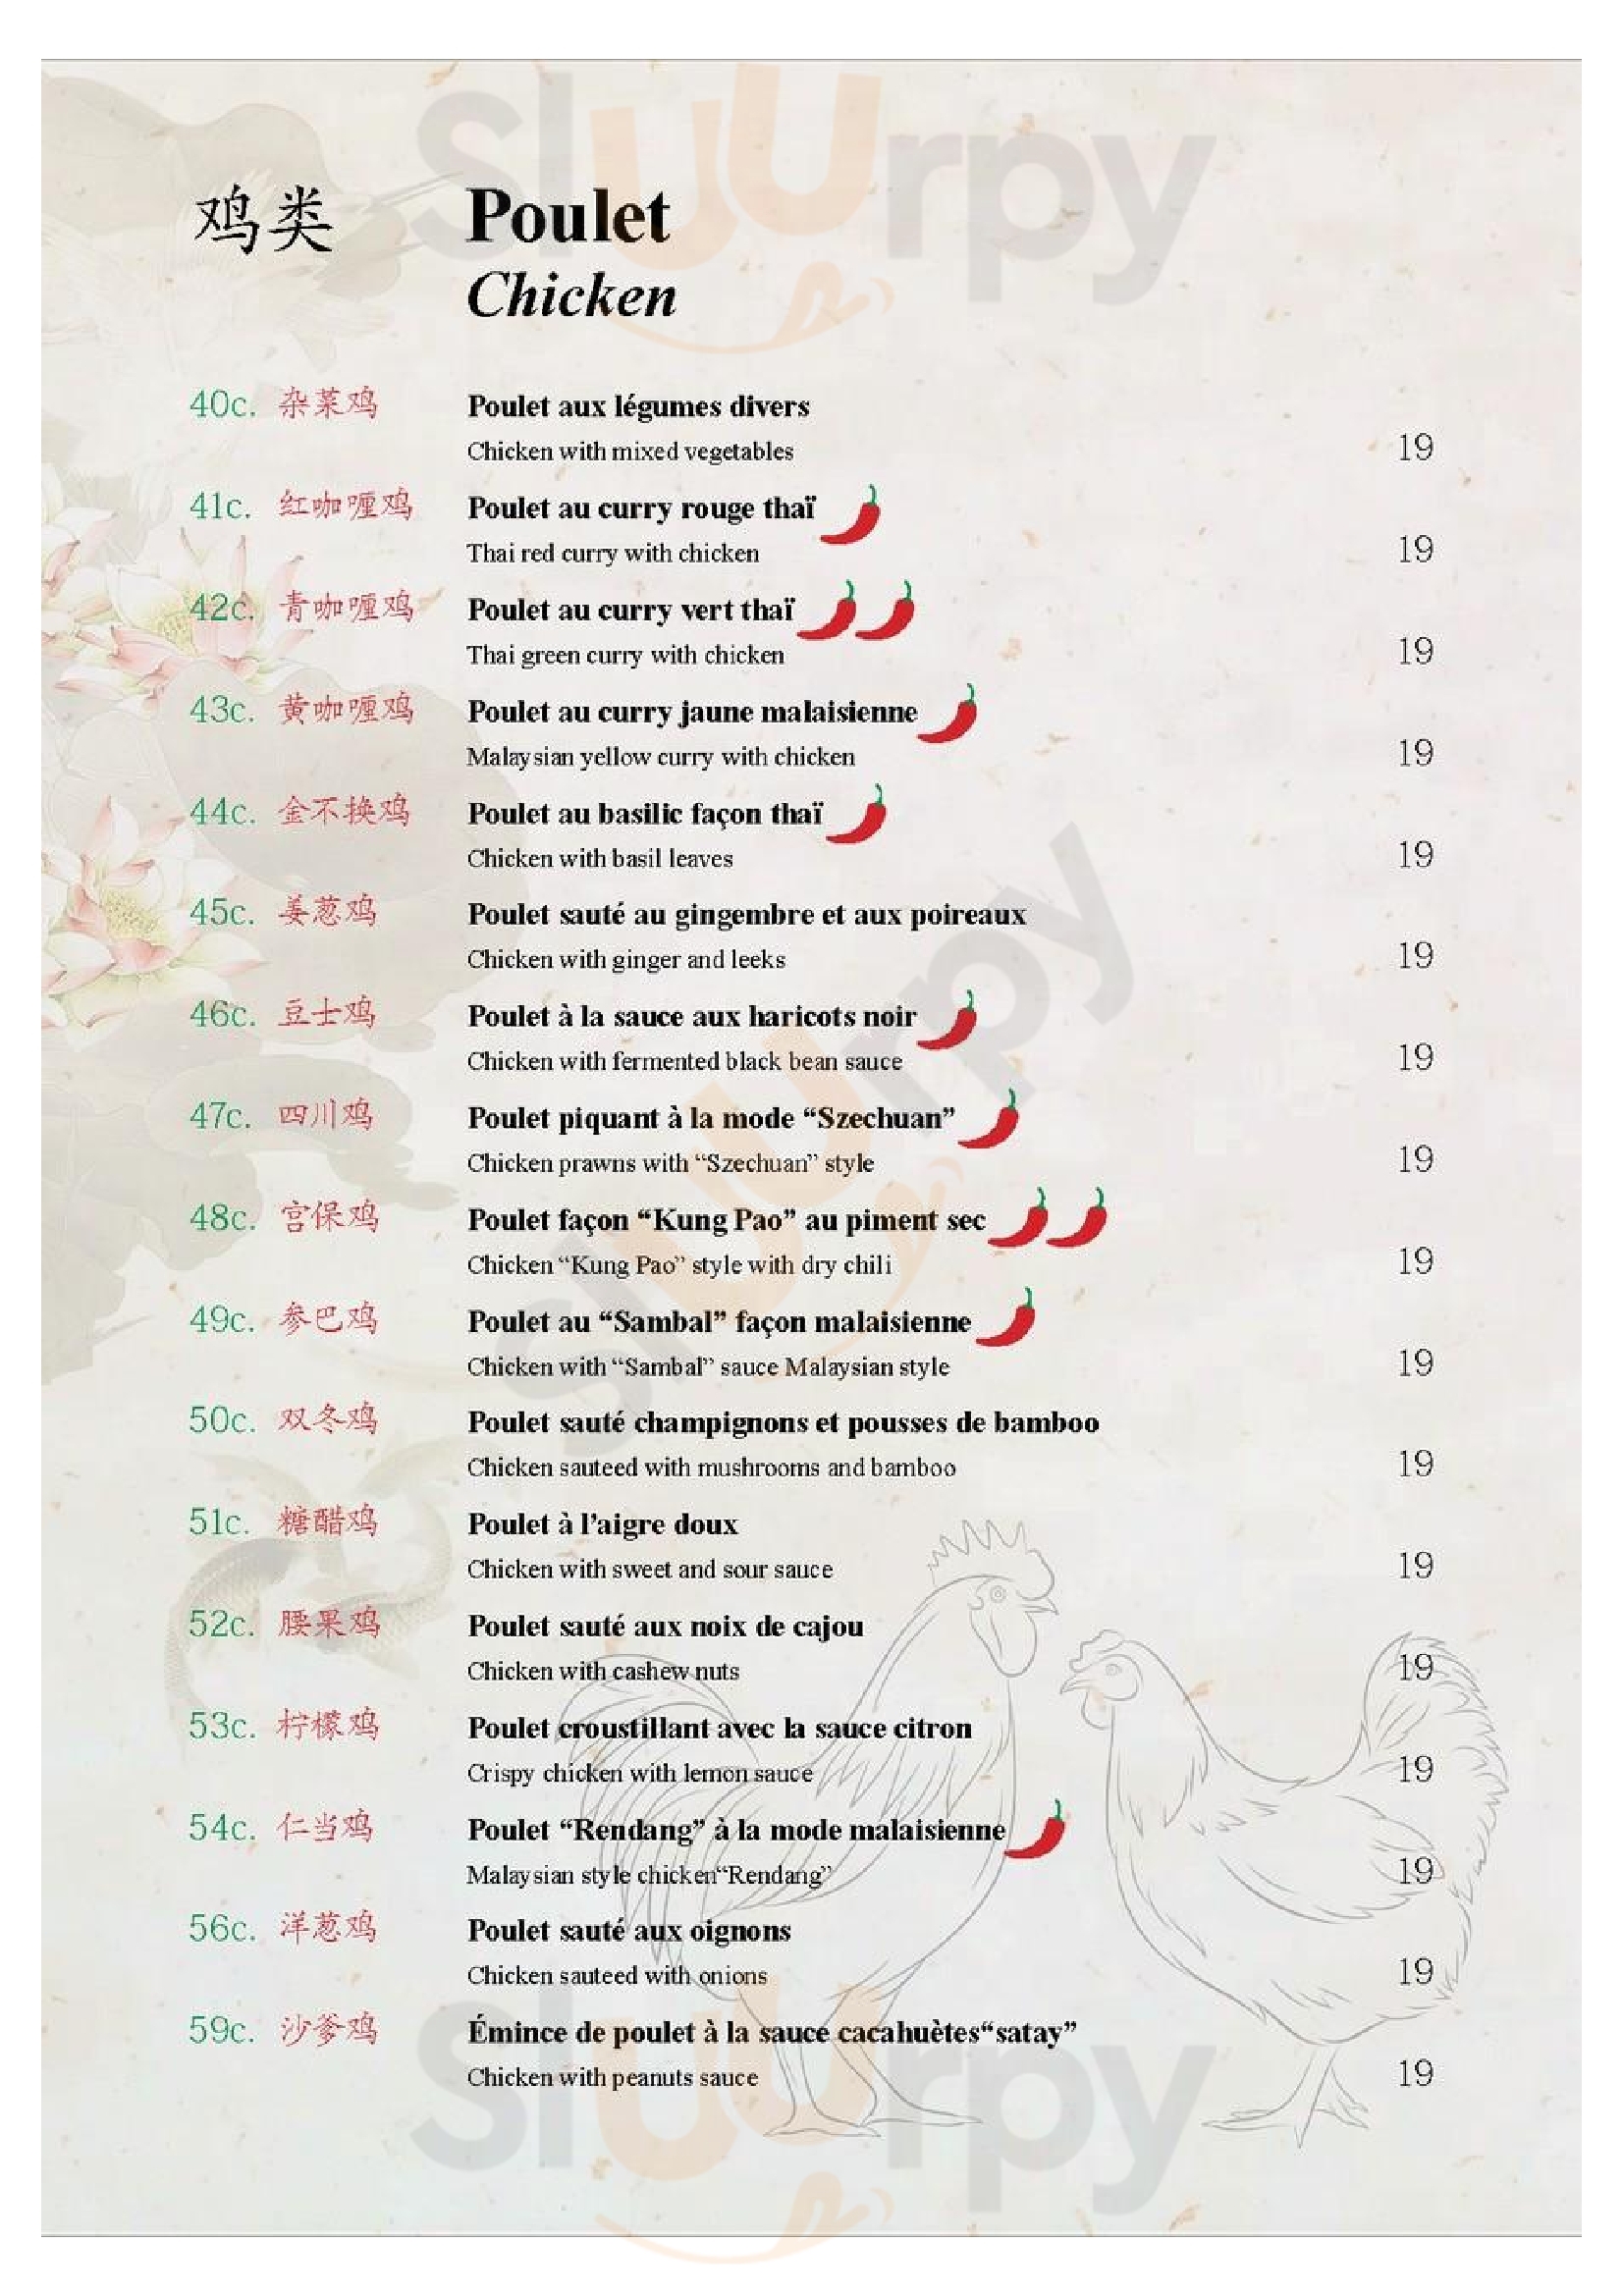 Sluurpy
鸡类 Poulet
Chicken
40c. 杂菜鸡 Poulet aux légumes divers
Chicken with mixed vegetables 19
41c. 红咖喱鸡 Poulet au curry rouge thaï
Thai red curry with chicken 19
42c. 青咖喱鸡 Poulet au curry vert thaï
Thai green curry with chicken 19
43c. 黄咖喱鸡 Poulet au curry jaune malaisienne
Malaysian yellow curry with chicken 19
44c. 金不换鸡 Poulet au basilic façon thaï
Chicken with basil leaves 19
45c. 姜葱鸡 Poulet sauté au gingembre et aux poireaux
Chicken with ginger and leeks 19
46c. 豆士鸡 Poulet à la sauce aux haricots noir
Chicken with fermented black bean sauce 19
47c. 四川鸡 Poulet piquant à la mode “Szechuan”
Chicken prawns with “Szechuan” style 19
48c. 宫保鸡 Poulet façon “Kung Pao” au piment sec
Chicken “Kung Pao” style with dry chili 19
49c. 参巴鸡 Poulet au “Sambal” façon malaisienne
Chicken with “Sambal” sauce Malaysian style 19
50c. 双冬鸡 Poulet sauté champignons et pousses de bamboo
Chicken sauteed with mushrooms and bamboo 19
51c. 糖醋鸡 Poulet à l’aigre doux
Chicken with sweet and sour sauce 19
52c. 腰果鸡 Poulet sauté aux noix de cajou
Chicken with cashew nuts 19
53c. 柠檬鸡 Poulet croustillant avec la sauce citron
Crispy chicken with lemon sauce 19
54c. 仁当鸡 Poulet “Rendang” à la mode malaisienne
Malaysian style chicken“Rendang” 19
56c. 洋葱鸡 Poulet sauté aux oignons
Chicken sauteed with onions 19
59c. 沙爹鸡 Émince de poulet à la sauce cacahuètes“satay”
Chicken with peanuts sauce 19
Sluurpy
Sluurpy